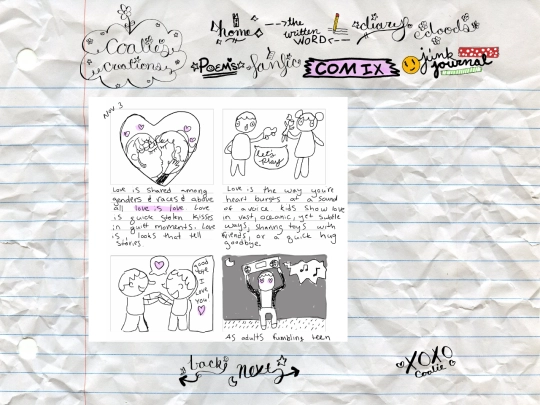 Coalies
Creations
home
--->the
written
WORD<---
diary
doods
Poems
fanfic
COMIX
junk
journal
NOV 3
let's
play!
Love is shared among
genders & races & above
all love is love Love
is quick stolen kisses
in quiet moments. Love
is looks that tell
stories
Love is the way your
heart bursts at a sound
of a voice kids show love
in vast, oceanic, yet subtle
ways, sharing toys with
friends, or a quick hug
goodbye.
Good
bye I
Love
You!
As adults fumbling teen
back
next
XOXO
Coalie